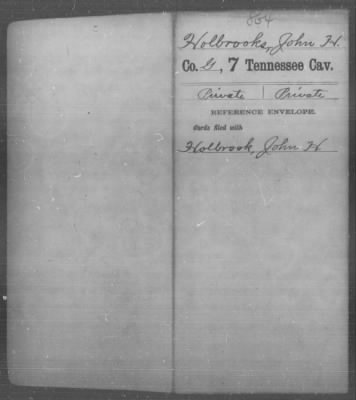 864
Holbrooks, John H.
Co. G, 7 Tennessee Cav.
Private | Private
REFERENCE ENVELOPE.
Cards filed with
Holbrook, John H